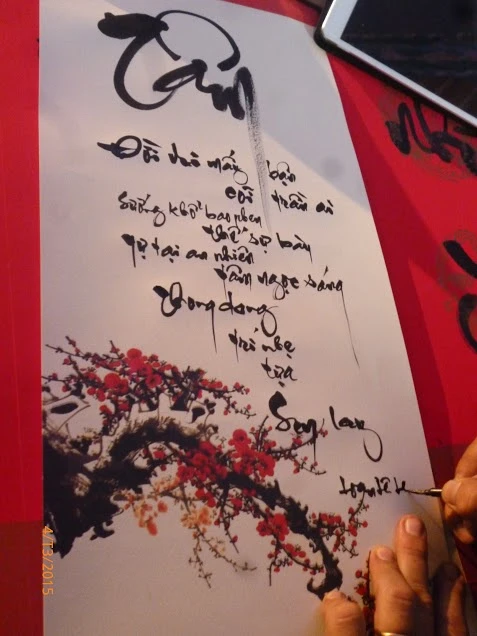 Tâm
Đổi trò mấy bận
cõi trần ai
Sướng khổ bao phen
thế sự bày
Tự tại an nhiên
tâm ngọc sáng
Thong dong
trí nhẹ
tựa
4/T3/2015